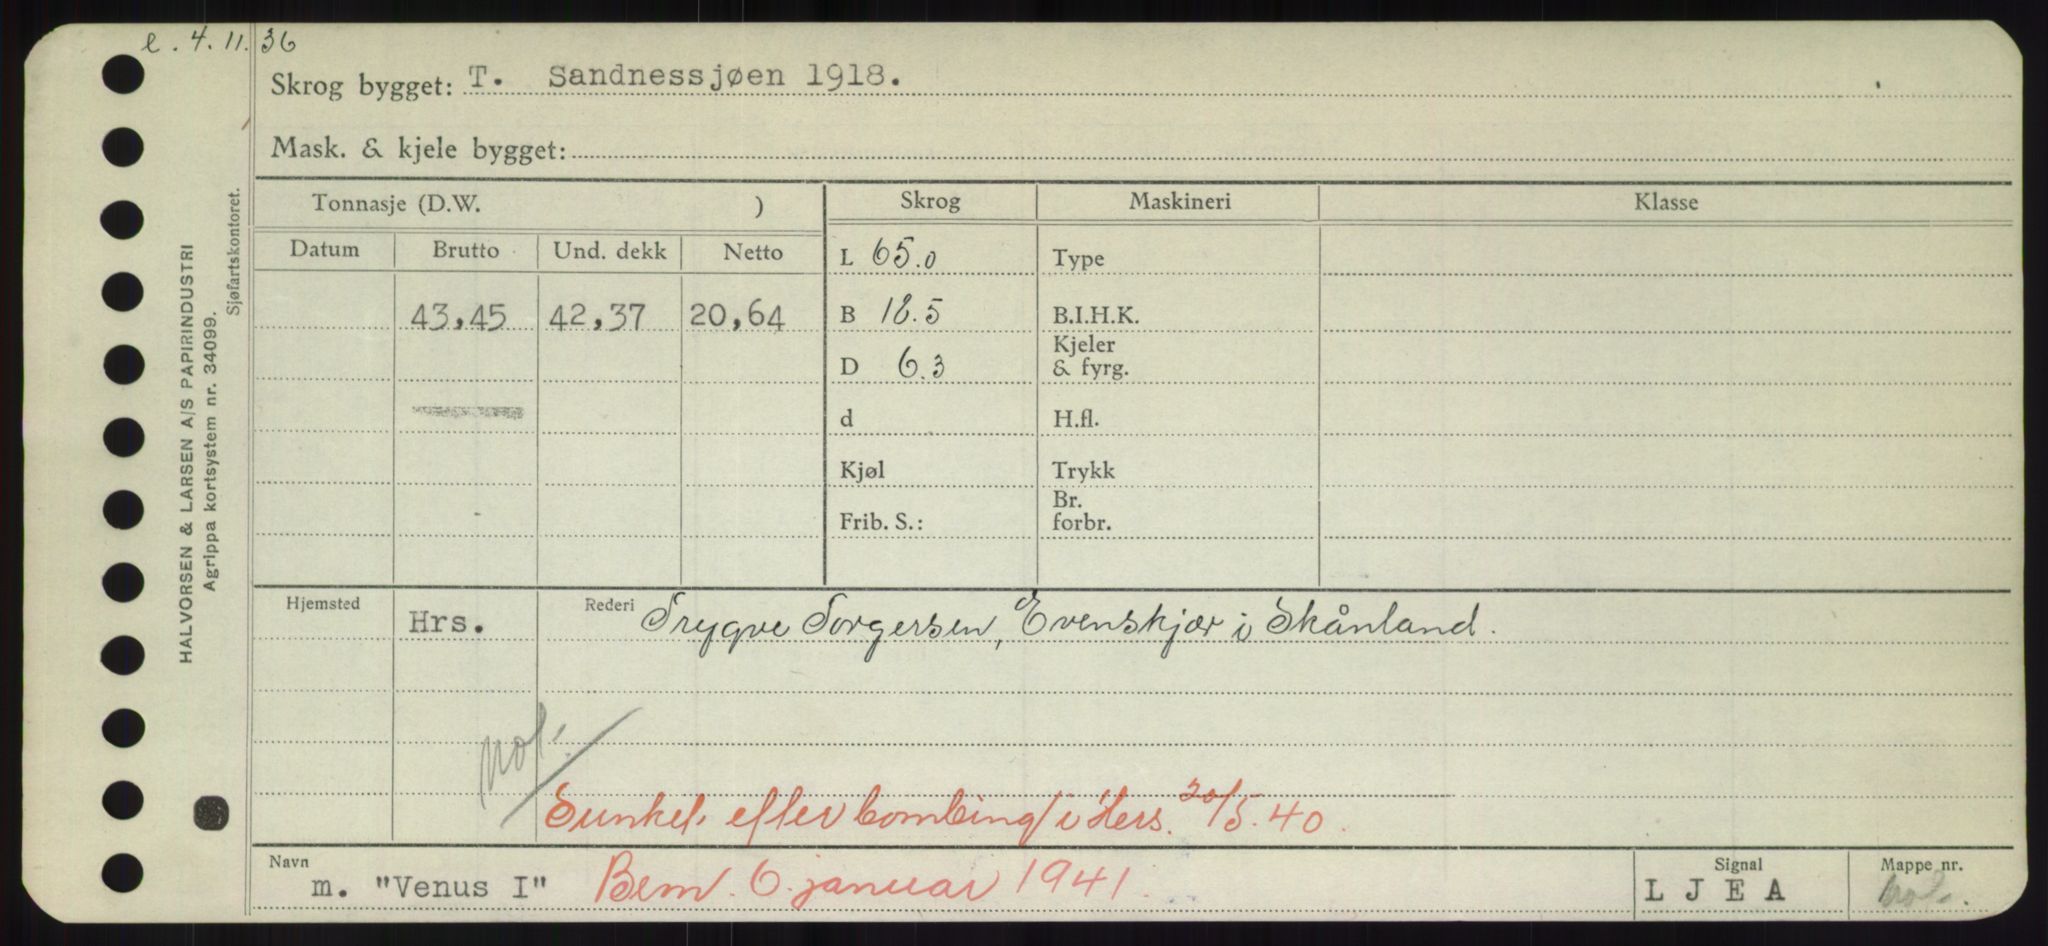 e. 4. 11. 36
Skrog bygget: T. Sandnessjøen 1918.
Mask. & kjele bygget:
Tonnasje (D.W. ) Skrog Maskineri Klasse
Datum Brutto Und. dekk Netto L 65.0 Type
43,45 42,37 20,64 B 18.5 B.I.H.K.
D 6.3 Kjeler & fyrg.
d H.fl.
Kjøl Trykk
Frib. S.: Br. forbr.
Hjemsted Hrs. Rederi Trygve Torgersen, Evenskjær i Skånland.
Sunket efter bombing i Hrs. 20/5.40.
Navn m. "Venus I" Bem. 6. januar 1941. Signal L J E A Mappe nr.
HALVORSEN & LARSEN A/S PAPIRINDUSTRI
Agrippa kortsystem nr. 34099.
Sjøfartskontoret.